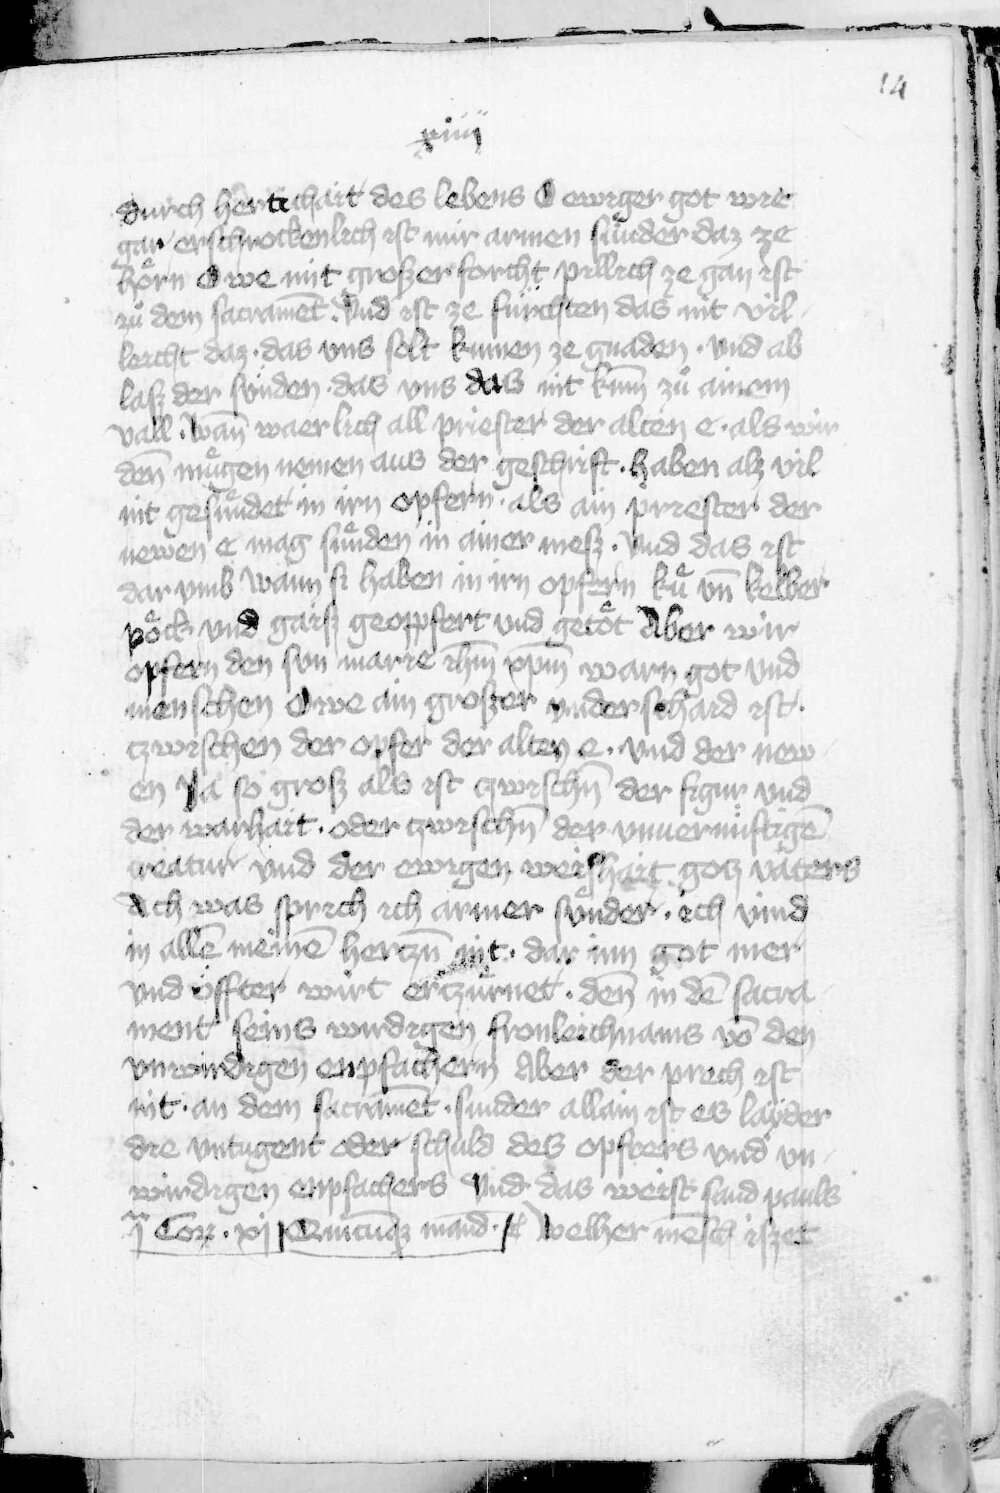 14
xiiij
durch hertichait des lebens O ewiger got wie
gar erschrockenlich ist mir armen sůnder daz ze
hoͤrn O we mit groszer forcht pillich ze gan ist
zů dem sacramēt. Vnd ist ze fürchten das nit vil
leicht daz. das vns solt kumen ze gnaden. vnd ab
lasz der sünden. das vns das nit kum̄ zů ainem
vall. Wan̄ waerlich all priester der alten e. als wir
den̄ mügen nemen aus der geschrift. haben alz vil
nit gesündet in irn opfern. als ain priester der
newen e mag sünden in ainer mesz. Vnd das ist
dar vmb Wann si haben in irn opfern ků vn̄ kelber
poͤck vnd gaisz geoppfert vnd getoͤt Aber wir
opfern den sun marie ihm̄ xp̄m warn got vnd
menschen Owe ain groszer vnderschaid ist.
czwischen der opfer der alten e. vnd der new
en Ja so grosz als ist czwischn̄ der figur vnd
der warhait. oder czwischn̄ der vnuernüftigē
creatur vnd der ewigen weishait gocz vaters
Ach was sprich ich armer sünder. ich vind
in allē meinē herczn̄ nit. dar inn got mer
vnd öffter wirt erczürnet. den̄ in dē sacra
ment seins wirdigen fronleichnams vō den
vnwirdigen enpfachern Aber der prech ist
nit. an dem sacramēt. sunder allain ist es layder
die vntugent oder schuld des opfrers vnd vn
wirdigen enpfachers Vnd das weist sand pauls
j Cor. xj Quicūqz mand. et Welher mēsch iszet